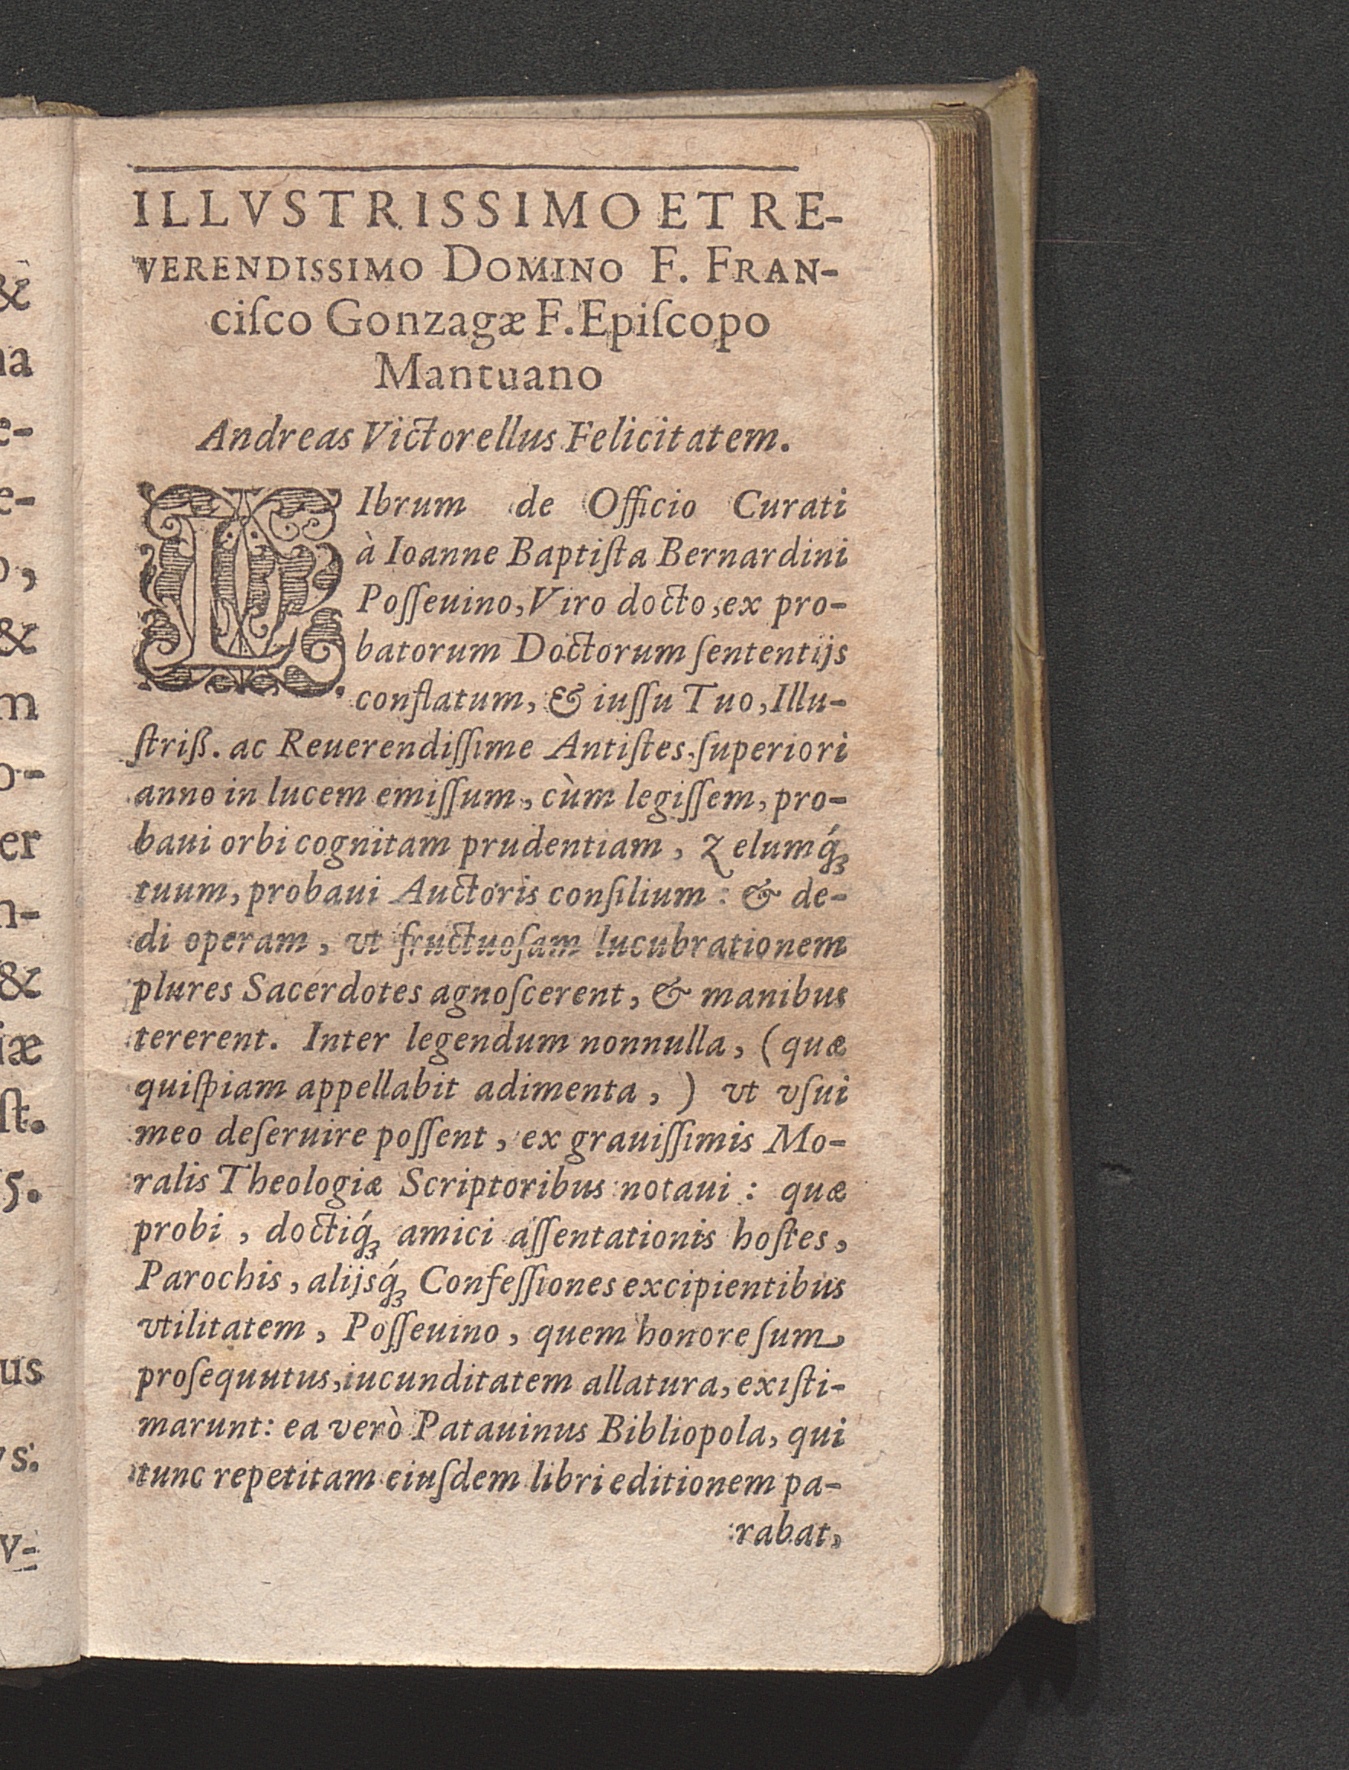 ILLVSTRISSIMO ET RE-
VERENDISSIMO DOMINO F. FRAN-
ciſco Gonzagæ F. Epiſcopo
Mantuano
Andreas Victorellus Felicitatem.
LIbrum de Officio Curati
à Ioanne Baptiſta Bernardini
Poſſeuino, Viro docto, ex pro-
batorum Doctorum ſententijs
conflatum, & iuſſu Tuo, Illu-
ſtriß. ac Reuerendiſſime Antiſtes, ſuperiori
anno in lucem emiſſum, cùm legiſſem, pro-
baui orbi cognitam prudentiam, Zelumq́;
tuum, probaui Auctoris conſilium : & de-
di operam, vt fructuoſam lucubrationem
plures Sacerdotes agnoſcerent, & manibus
tererent. Inter legendum nonnulla, (quæ
quiſpiam appellabit adimenta, ) vt vſui
meo deſeruire poſſent, ex grauiſſimis Mo-
ralis Theologiæ Scriptoribus notaui : quæ
probi, doctiq́; amici aſſentationis hoſtes,
Parochis, alijsq́; Confeſſiones excipientibus
vtilitatem, Poſſeuino, quem honore ſum
proſequutus, iucunditatem allatura, exiſti-
marunt: ea verò Patauinus Bibliopola, qui
tunc repetitam eiuſdem libri editionem pa-
rabat,
&
na
e-
e-
o,
&
m
o-
er
n-
&
iæ
ſt.
5.
us
vs.
V-